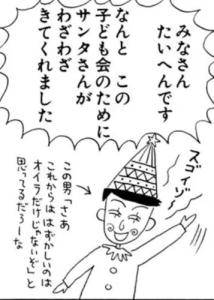 みなさん
たいへんです
なんと この
子ども会のために
サンタさんが
わざわざ
きてくれました
スゴイゾ〜
この男「さあ
これからははずかしいのは
オイラだけじゃないぞ」と
思ってるだろーな